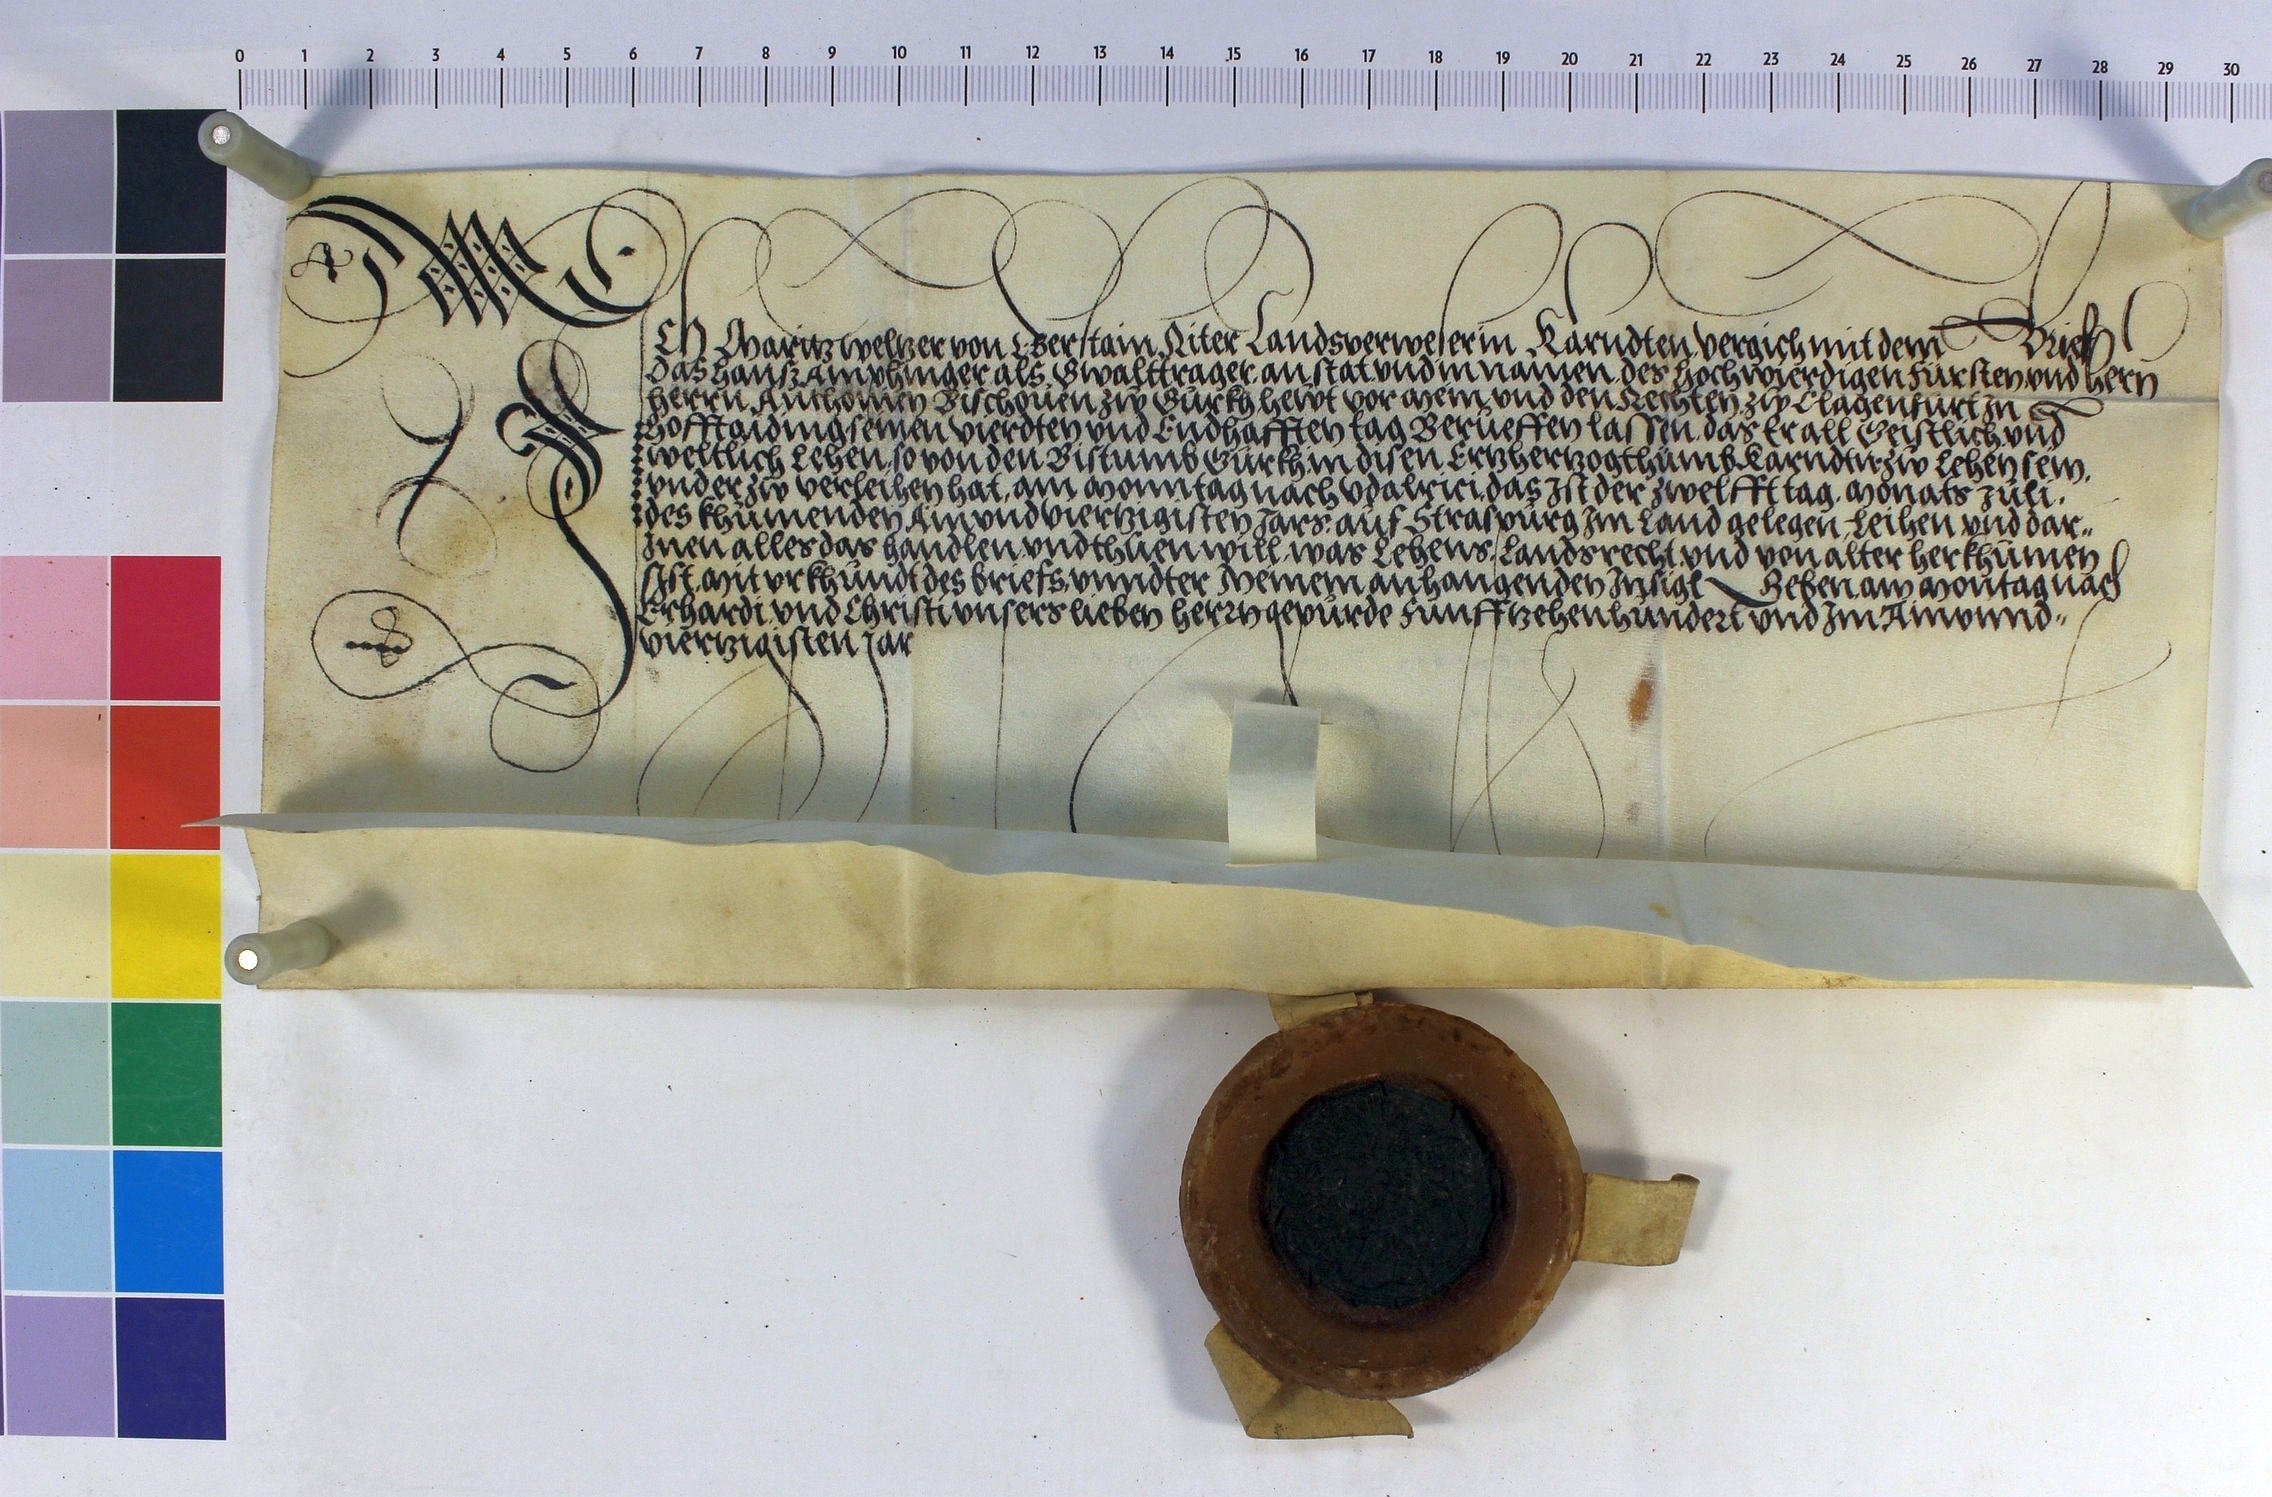 0 1 2 3 4 5 6 7 8 9 10 11 12 13 14 15 16 17 18 19 20 21 22 23 24 25 26 27 28 29 30
Ich Maritz welzer von Eberstain Riter Landsverweser in Karndten, vergich mit dem Brief
Das hanß Amphinger als Gwalttrager, an stat vnd in namen des hochwierdigen Fürsten vnd hern
herrn Anthonien Bischouen zw Gürkh hewt vor mein vnd den Rechten zw Clagenfurt In
hofftaiding seinen vierdten vnd Endhafften tag Berüeffen lassen, das Er all Geistlich vnd
weltlich Lehen, so von den Bistumb Gürkh in disen Ertzhertzogthumb Karndtn zw Lehen sein,
vnd er zw verleihen hat, am Monntag nach Vdalrici, das Ist der zwelfft tag, Monats Juli,
des khumenden Ain vnd viertzigisten Jars, auf Straspurg Im Land gelegen, Leihen vnd dar„
Inen alles das handlen vnd thuen will, was Lehens, Landsrecht, vnd von alter herkhumen
Ist, Mit vrkhundt des briefs, vnndter Meinem anhangenden Insigl Geben am Montag nach
Erhardi, vnd Christi vnsers lieben herrn gepürde Funfftzehenhundert vnd Im Ainvnnd„
viertzigisten Jar